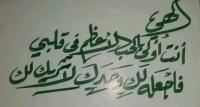 إلهي
أنت أولى بالحب الأعظم في قلبي
فاجعله لك وحدك لا شريك لك